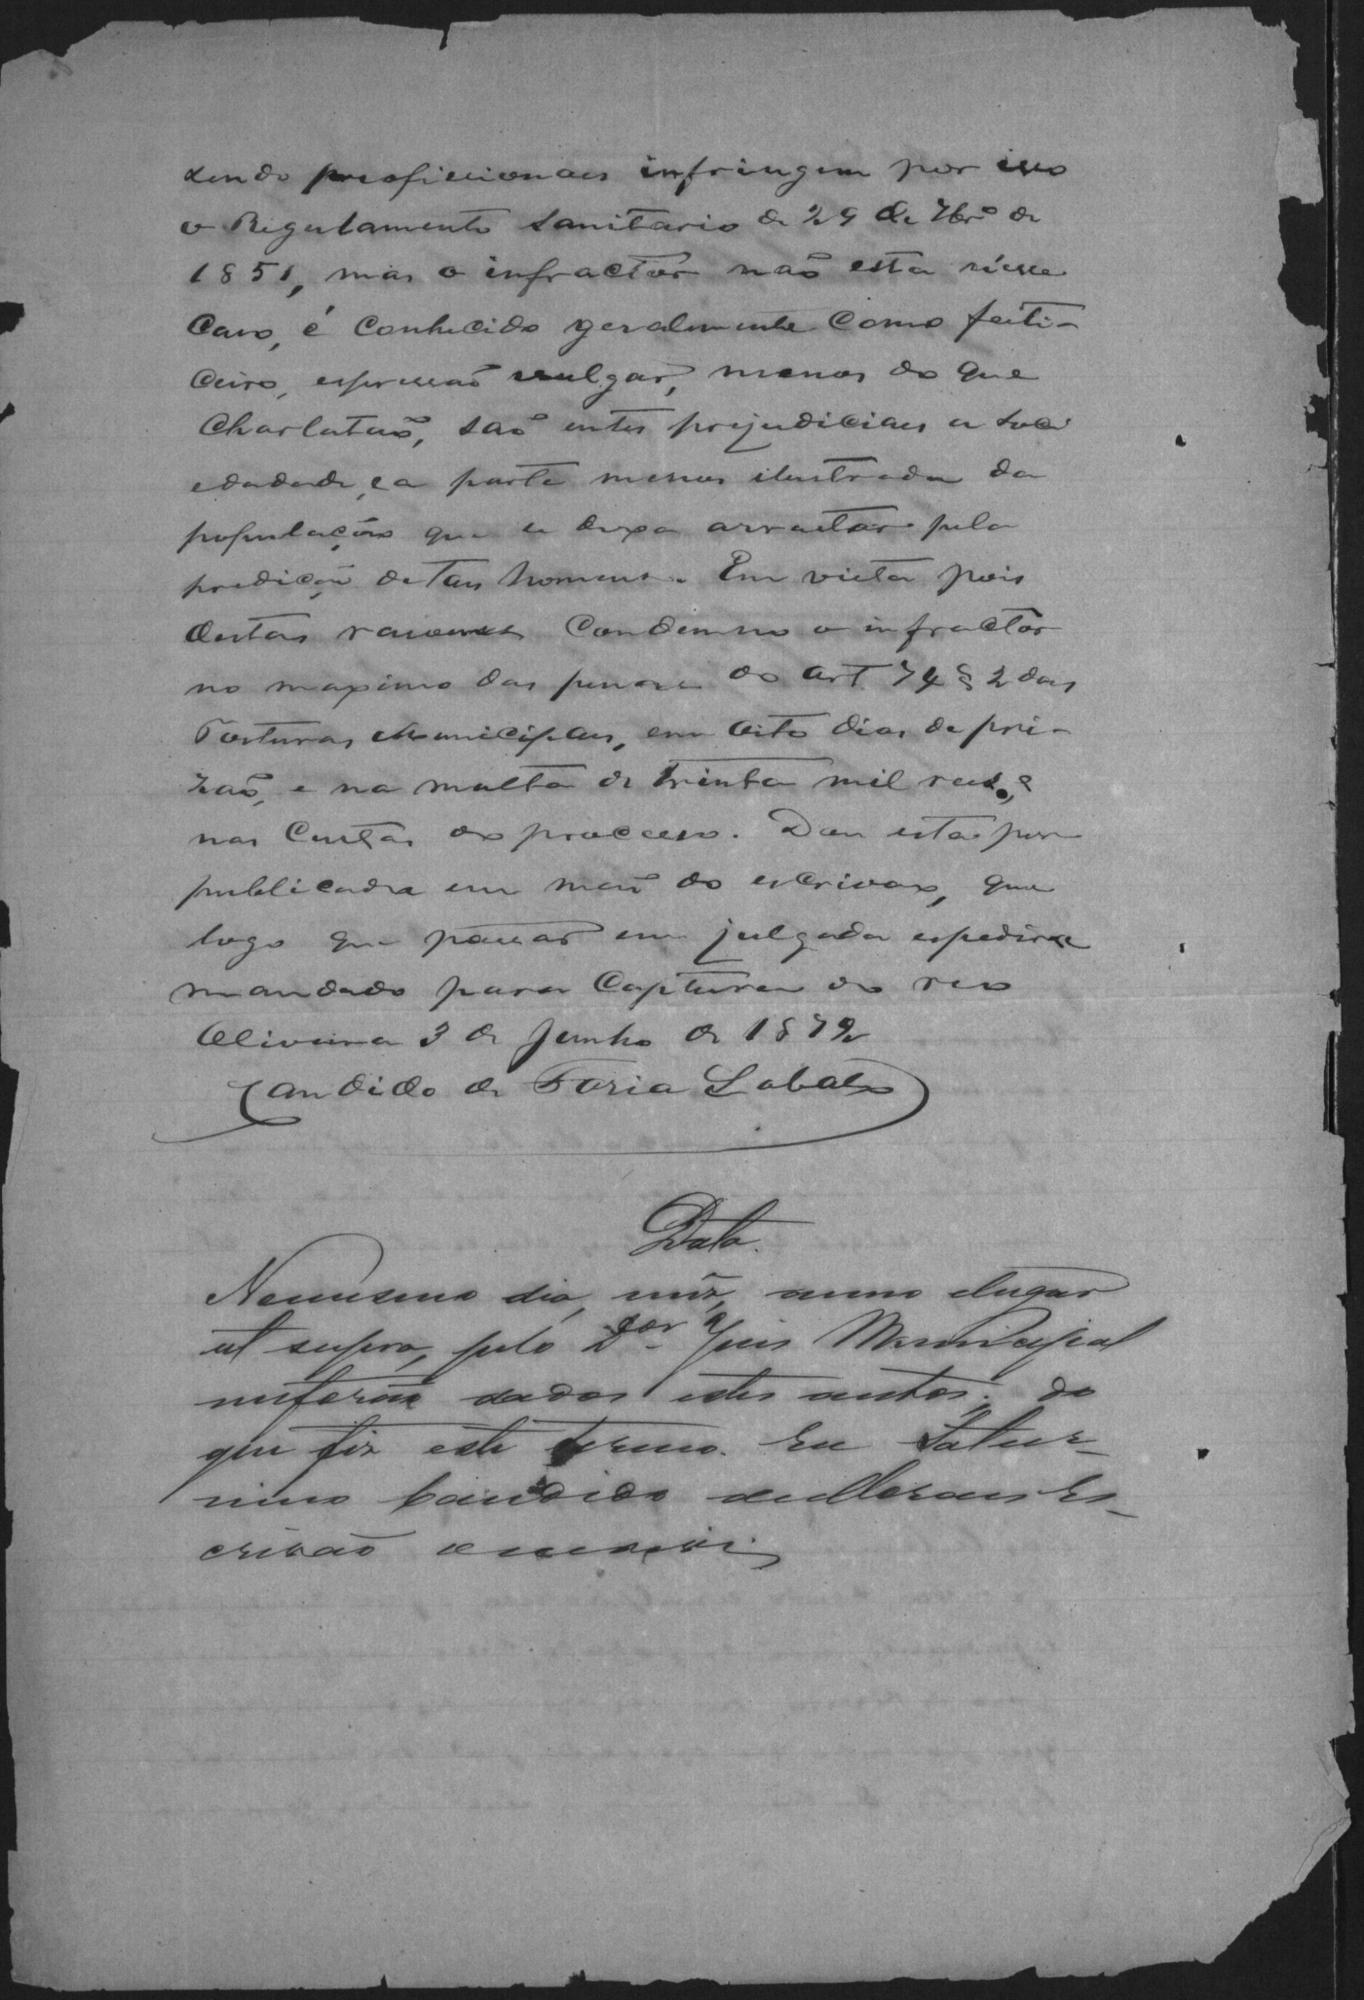 sendo proficionaes infringem por isso
o Regulamento Sanitario de 29 de 7brº de
1851, mas o infractor não esta nésse
caso, é conhecido geralmente como feiti-
ceiro, espressão vulgar, menos do que
Charlatão, são entes prejudiciaes a soci
edadade, e a parte menos ilustrada da
população que se deixa arrastar pela
predição de Taes homens. Em vista pois
destas rasoens Condemno o infractor
no maximo das penas do art 74 § 2 das
Posturas Municipaes, em oito dias de pri-
zão, e na multa de trinta mil reis, e
nas Custas do processo. Dou esta por
publicada em mão do escrivão, que
logo que passar em julgado expedirá
mandado para Captura do reo
Oliveira 3 de Junho de 1872
Candido de Faria Lobato
Data.
No mesmo dia, mêz, anno e lugar
ut supra, pelo Dor Juis Municipal
me forão dados estes autos; do
que fiz este termo. Eu Satur-
nino Candido de Moraes Es-
crivão o escrevi